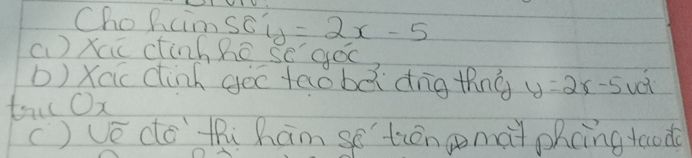 Cho hàm số y = 2x - 5
a) Xác định hệ số góc
b) Xác định góc tạo bởi đng thng y = 2x - 5 với
trục Ox
c) Vẽ đồ thị hàm số trên mặt phẳng tạo độ